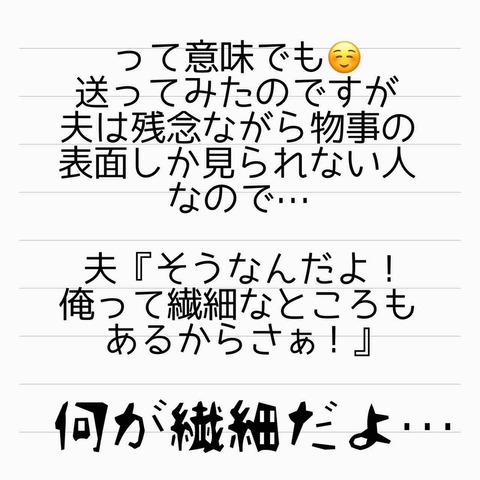 って意味でも☺️
送ってみたのですが
夫は残念ながら物事の
表面しか見られない人
なので…
夫『そうなんだよ！
俺って繊細なところも
あるからさぁ！』
何が繊細だよ…